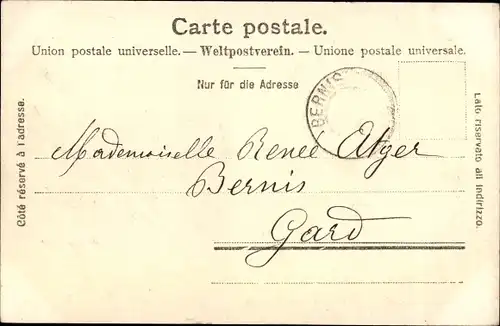 Carte postale.
Union postale universelle. — Weltpostverein. — Unione postale universale.
Nur für die Adresse
BERNIS
Côté réservé à l'adresse.
Lato riservato all indirizzo.
Mademoiselle Renée Atger
Bernis
Gard